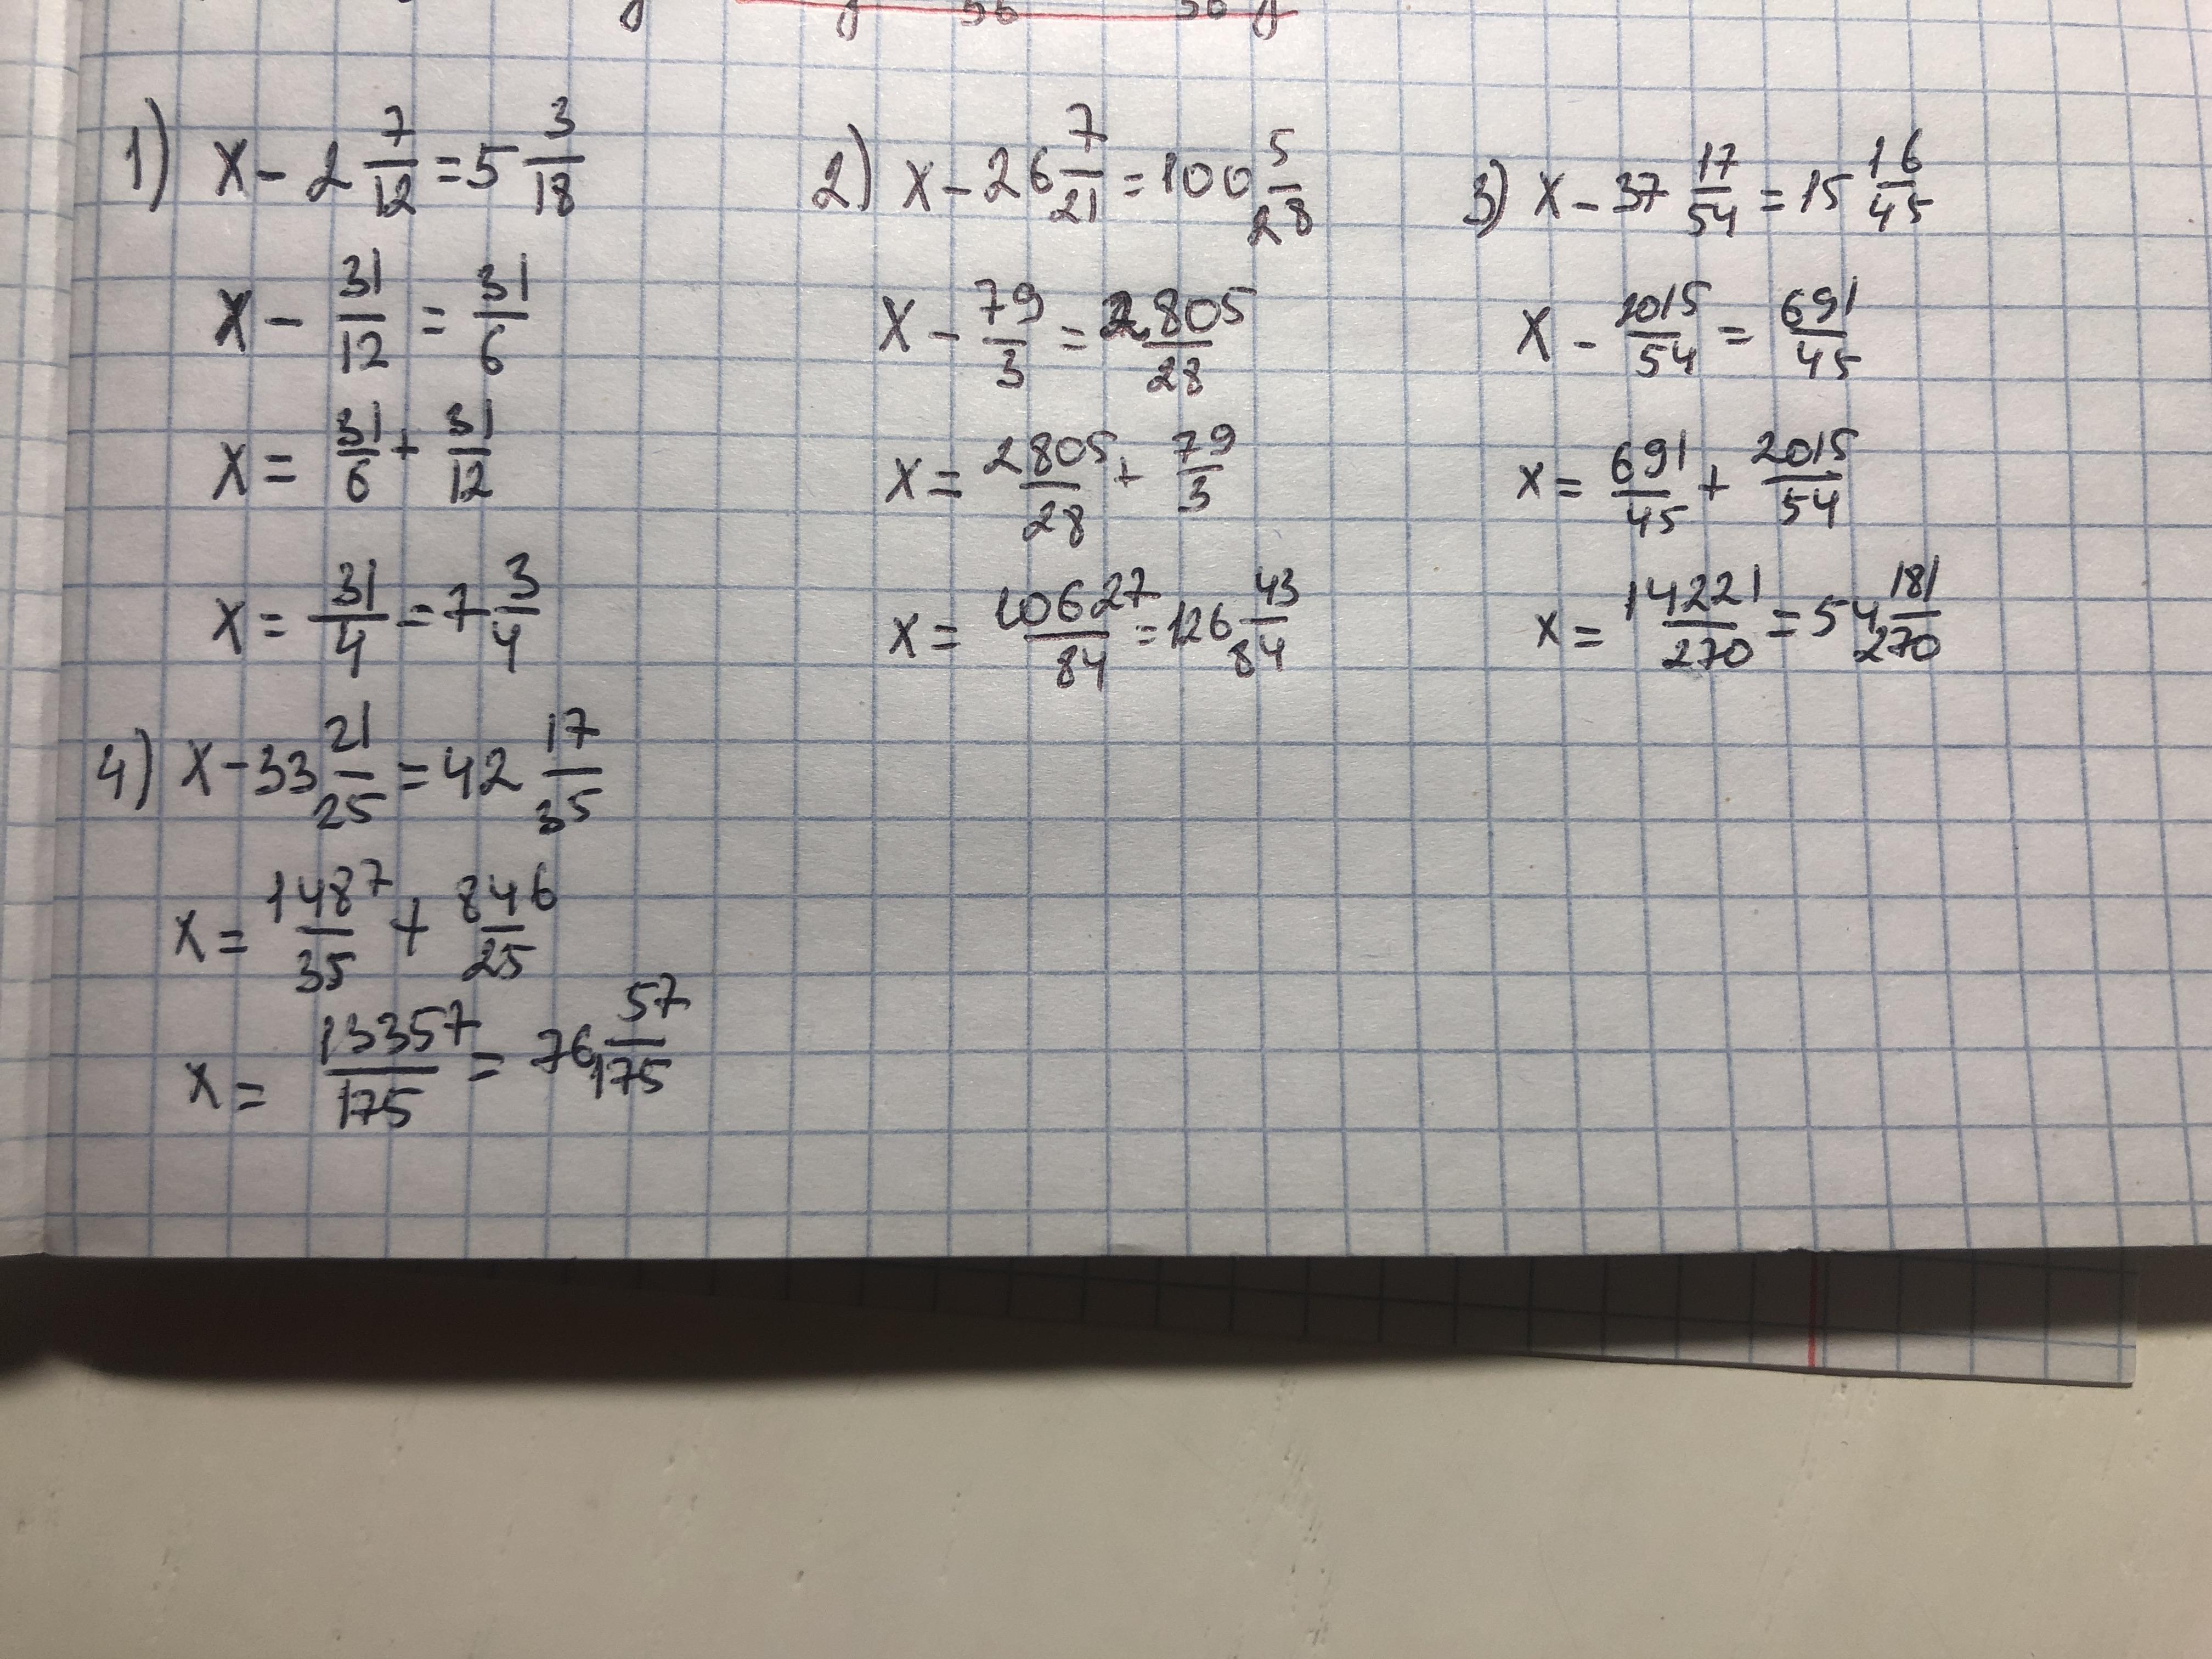 56 56
1) x - 2 7/12 = 5 3/18
x - 31/12 = 31/6
x = 31/6 + 31/12
x = 31/4 = 7 3/4
2) x - 26 7/21 = 100 5/28
x - 79/3 = 2805/28
x = 2805/28 + 79/3
x = 10627/84 = 126 43/84
3) x - 37 17/54 = 15 16/45
x - 2015/54 = 691/45
x = 691/45 + 2015/54
x = 14221/270 = 54 181/270
4) x - 33 21/25 = 42 17/35
x = 1487/35 + 846/25
x = 13357/175 = 76 57/175